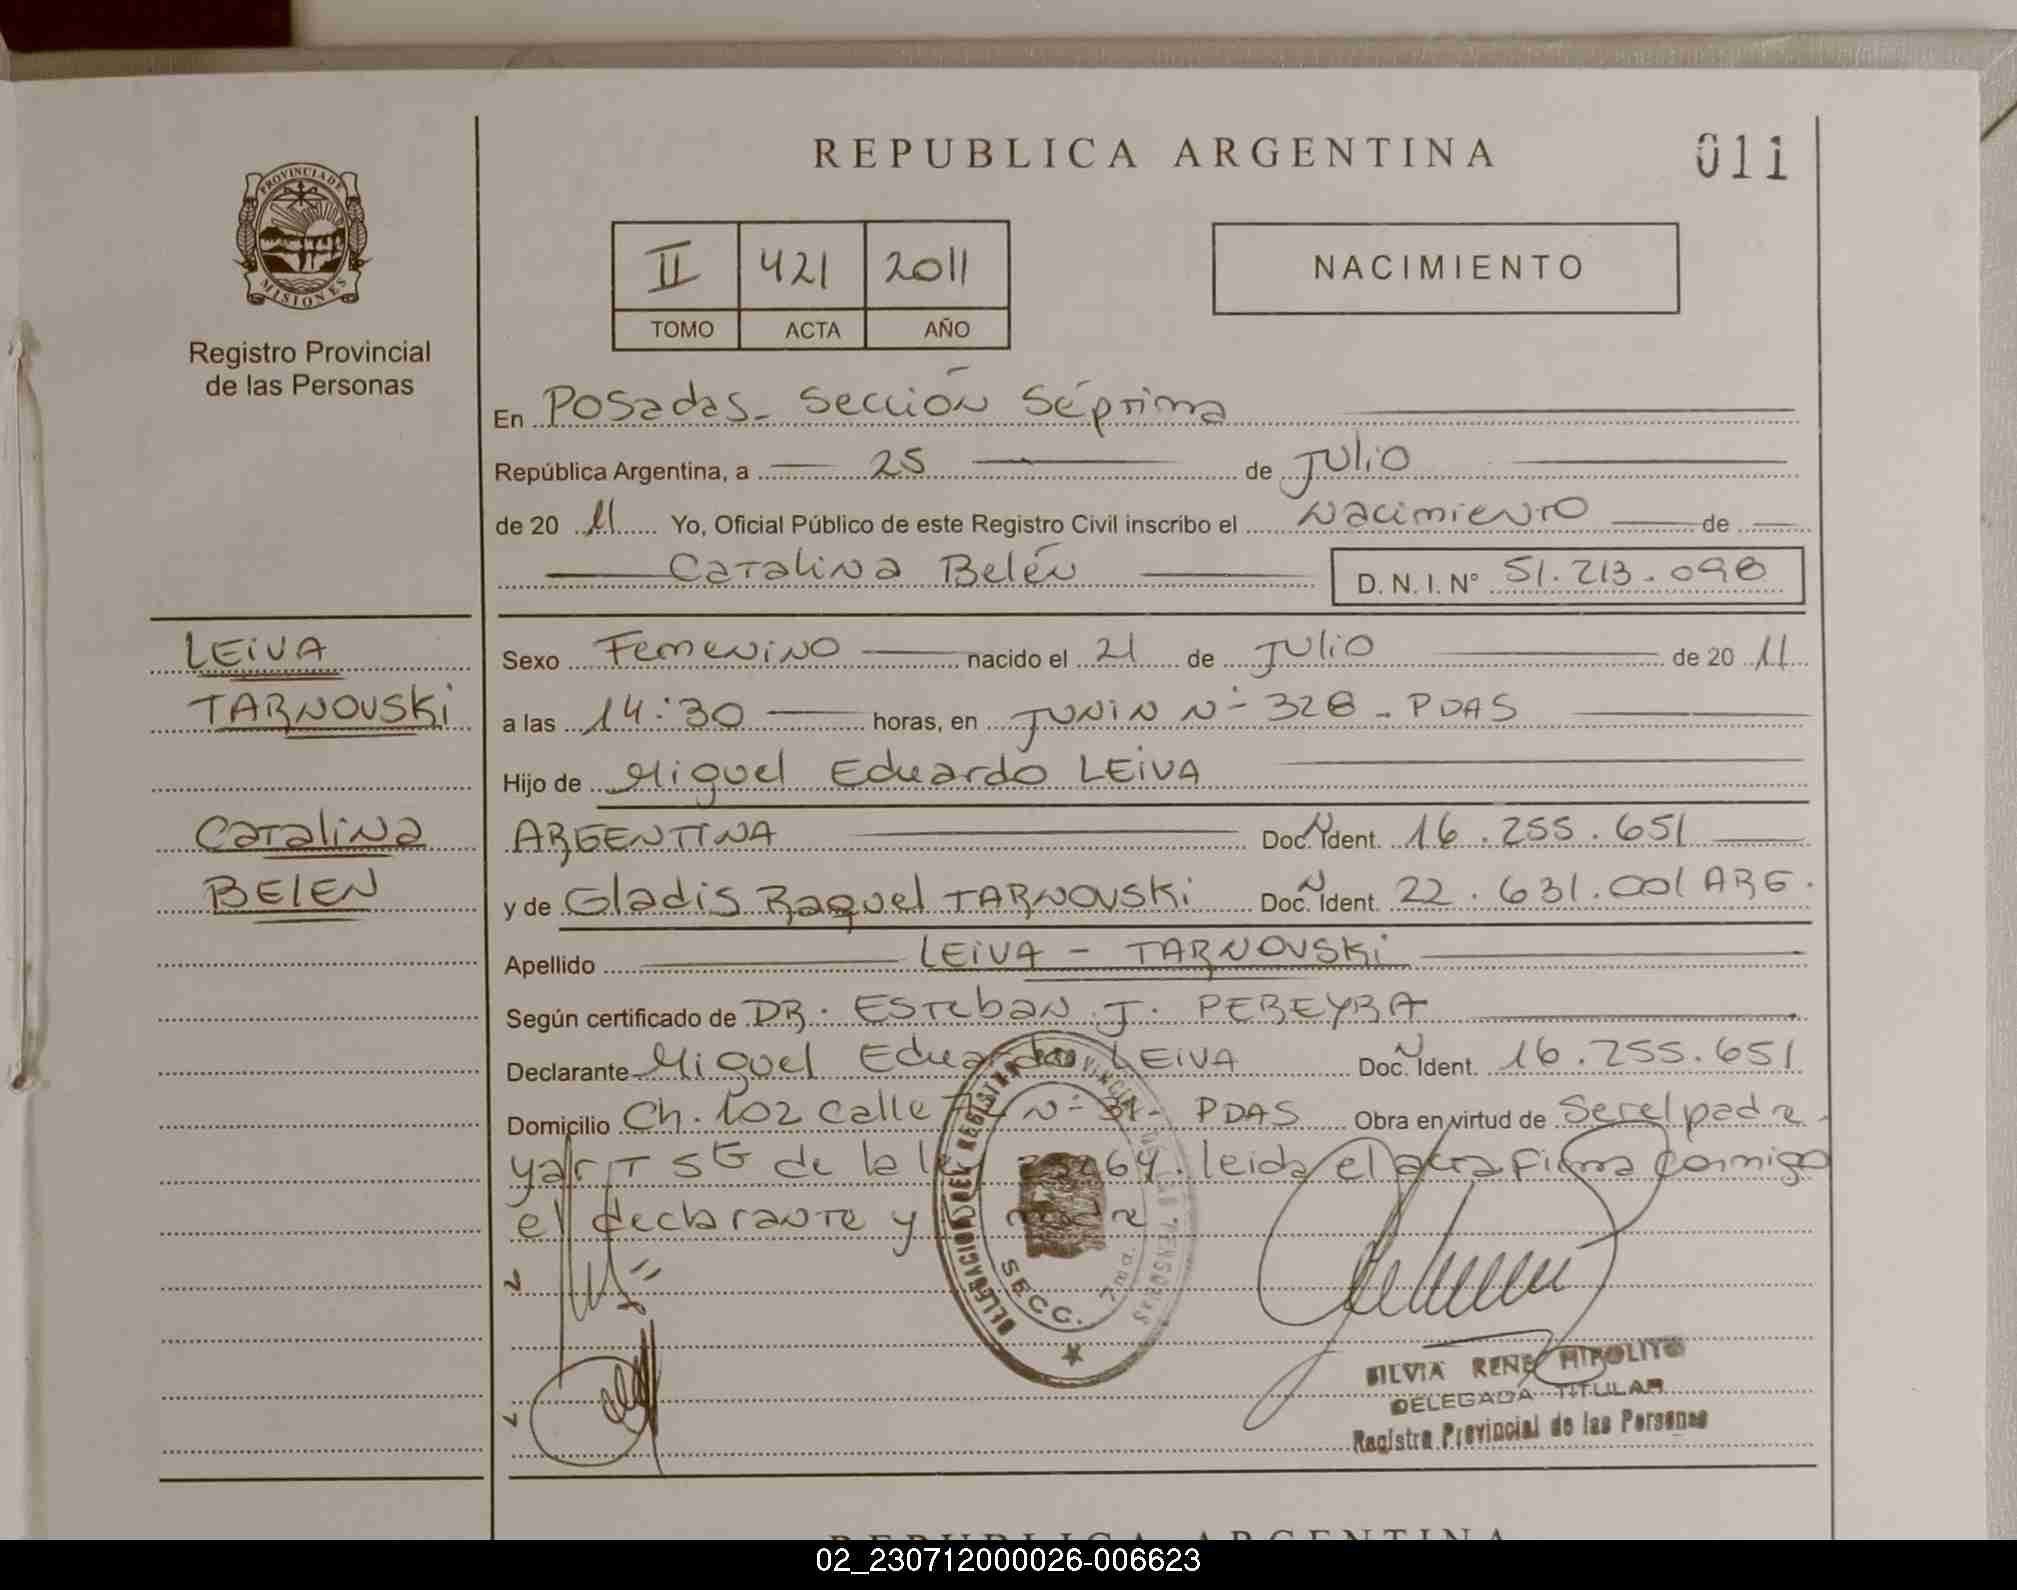 REPUBLICA ARGENTINA
011
PROVINCIA DE
MISIONES
Registro Provincial
de las Personas
II 421 2011
TOMO ACTA AÑO
NACIMIENTO
En Posadas - Sección Séptima
República Argentina, a 25 de Julio
de 20 11 Yo, Oficial Público de este Registro Civil inscribo el Nacimiento de
Catalina Belén D. N. I. N° 51.213.098
LEIVA
TARNOVSKi
Catalina
BELEN
Sexo Femenino nacido el 21 de Julio de 20 11
a las 14:30 horas, en JUNIN N° 328 - PDAS
Hijo de Miguel Eduardo LEIVA
ARGENTINA Doc. Ident. 16.255.651
y de Gladis Raquel TARNOVSKi Doc. Ident. 22.631.001 ARG.
Apellido LEIVA - TARNOVSKi
Según certificado de DR. Esteban J. PEREYRA
Declarante Miguel Eduardo LEIVA Doc. Ident. 16.255.651
Domicilio Ch. 102 Calle N° PDAS Obra en virtud de Ser el padre
y art 5to de la leida el acta firma conmigo
el declarante y madre
DELEGACION DEL REGISTRO PROVINCIAL DE LAS PERSONAS
SECC. 7ma.
SILVIA RENE HIPOLITO
DELEGADA TITULAR
Registro Provincial de las Personas
REPUBLICA ARGENTINA
02_230712000026-006623